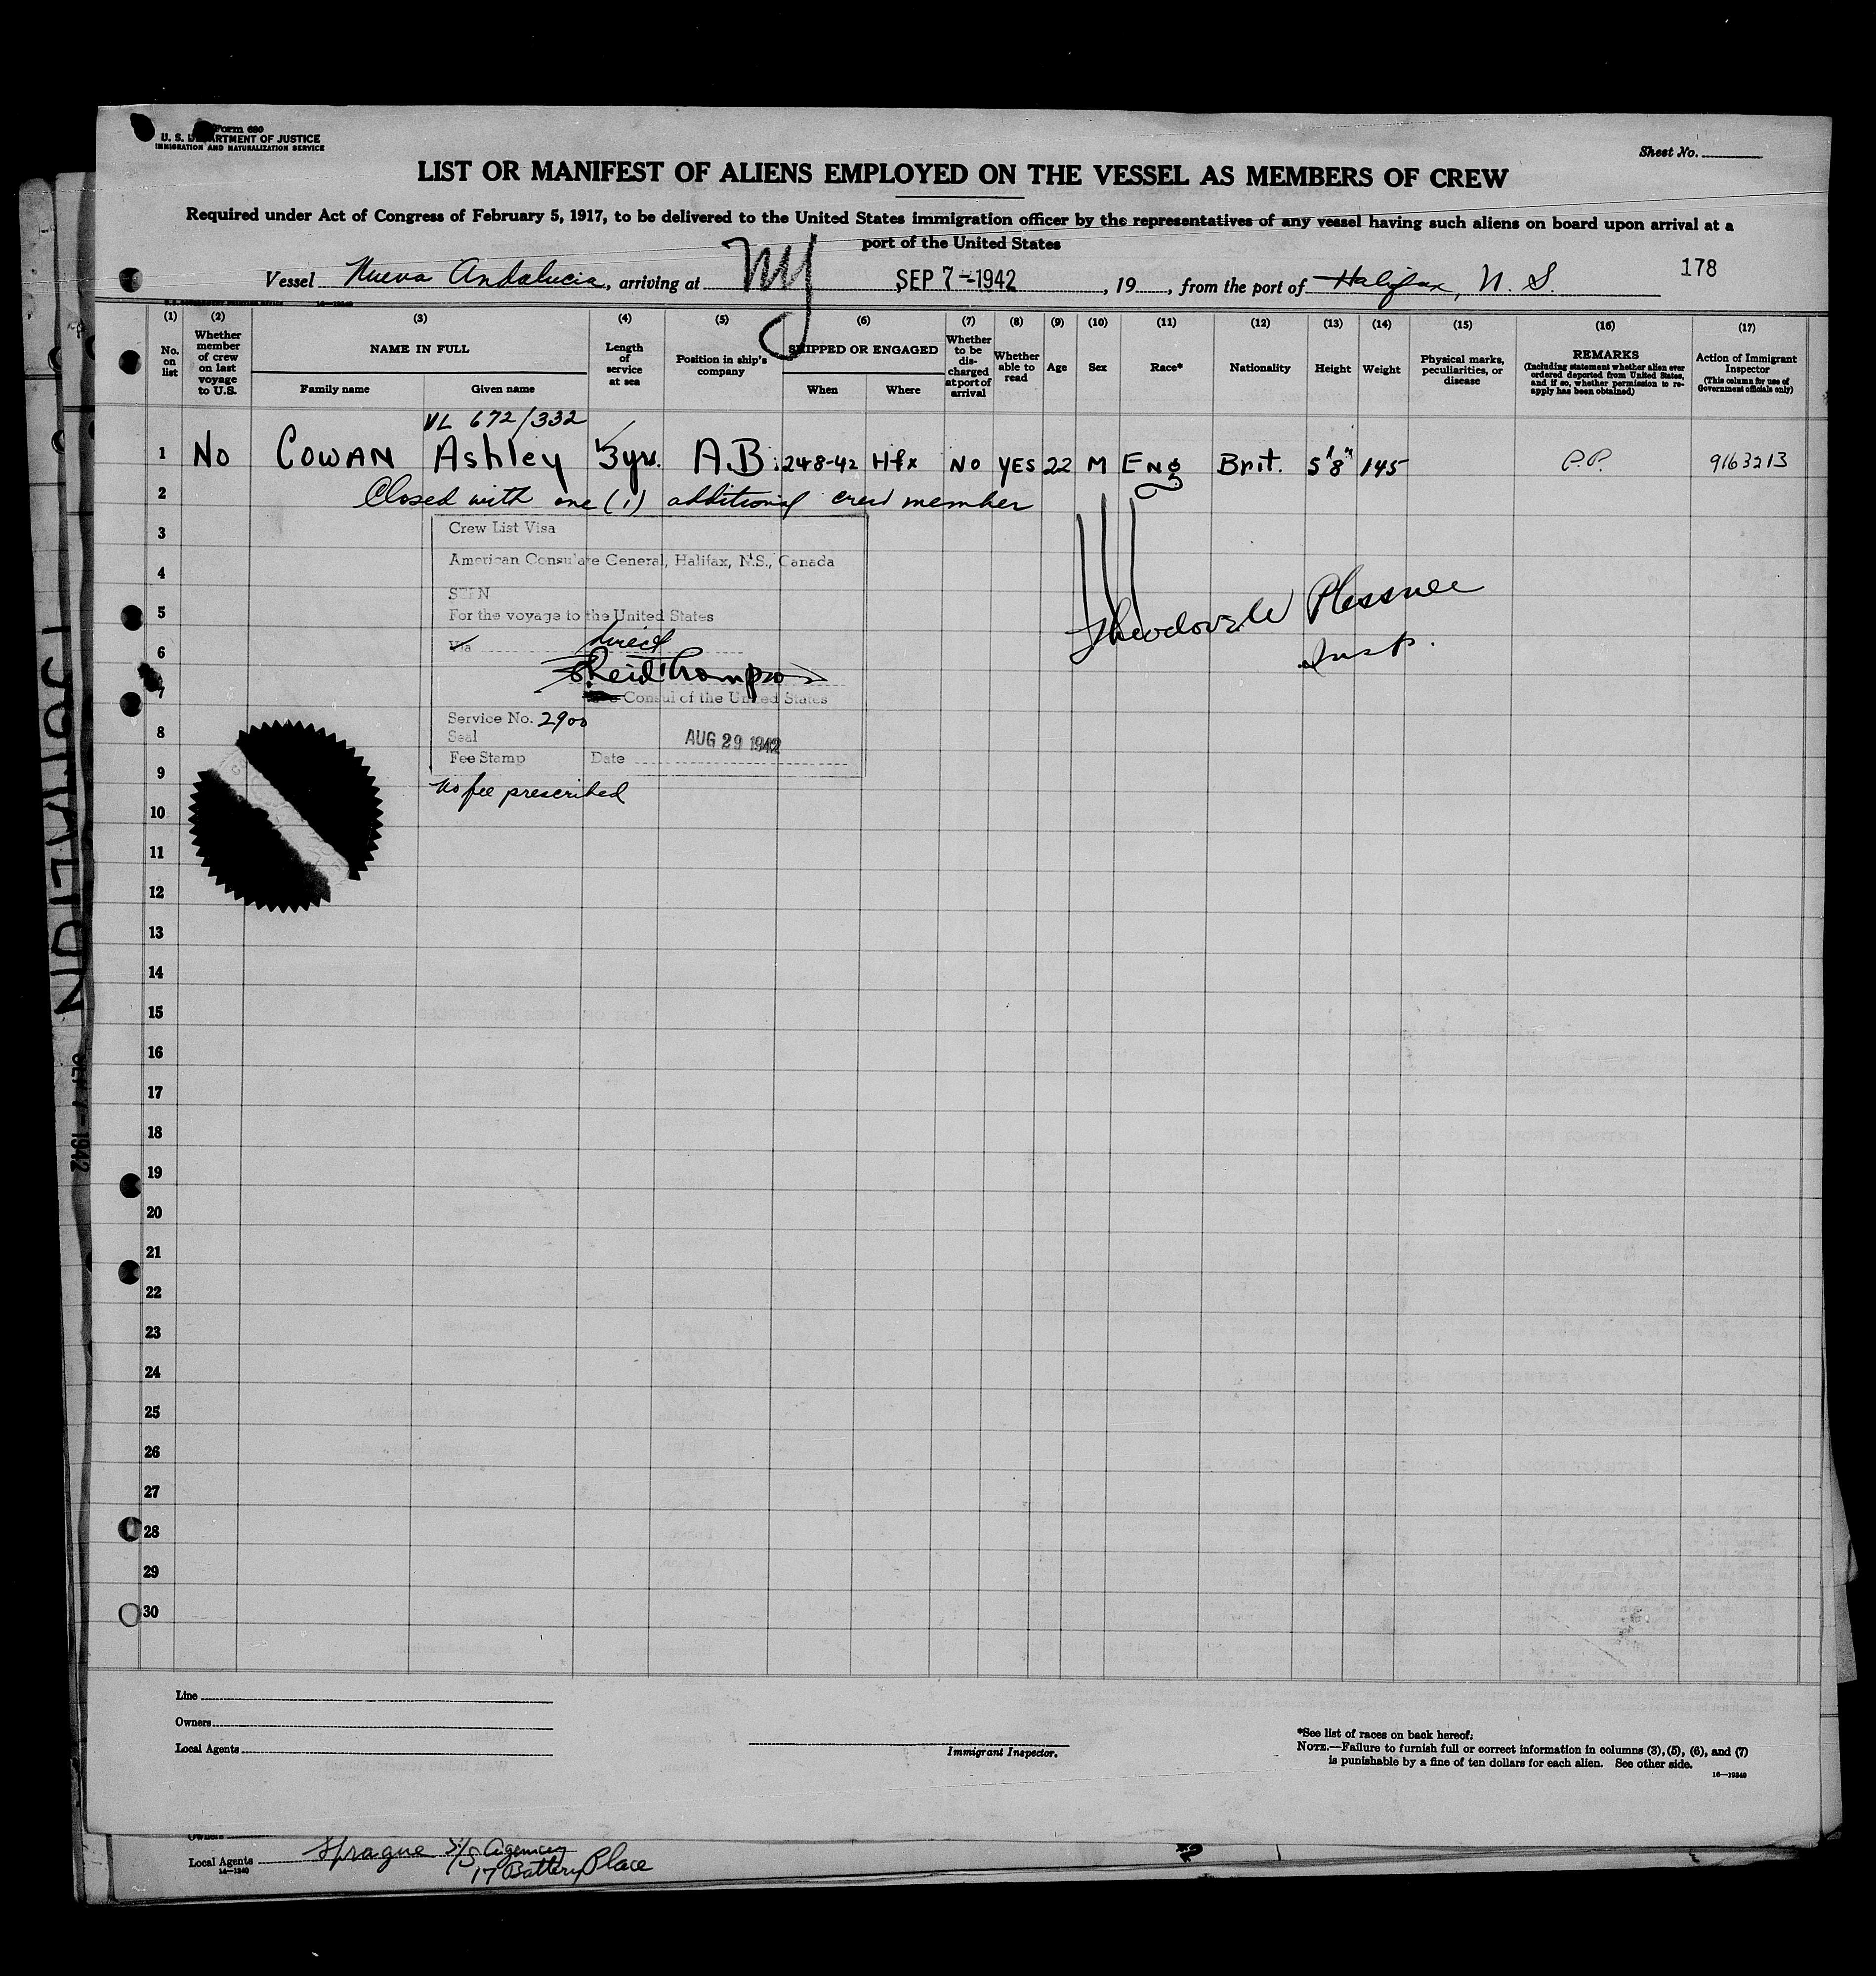 Form 680
U. S. DEPARTMENT OF JUSTICE
IMMIGRATION AND NATURALIZATION SERVICE
Sheet No.
LIST OR MANIFEST OF ALIENS EMPLOYED ON THE VESSEL AS MEMBERS OF CREW
Required under Act of Congress of February 5, 1917, to be delivered to the United States immigration officer by the representatives of any vessel having such aliens on board upon arrival at a
port of the United States
178
Vessel Nueva Andalucia, arriving at NY SEP 7-1942, 19, from the port of Halifax, N. S.
(1) (2) (3) (4) (5) (6) (7) (8) (9) (10) (11) (12) (13) (14) (15) (16) (17)
No. on list
Whether member of crew on last voyage to U.S.
NAME IN FULL
Family name Given name
Length of service at sea
Position in ship's company
SHIPPED OR ENGAGED
When Where
Whether to be discharged at port of arrival
Whether able to read
Age
Sex
Race*
Nationality
Height
Weight
Physical marks, peculiarities, or disease
REMARKS
(Including statement whether alien ever ordered deported from United States, and if so, whether permission to reapply has been obtained)
Action of Immigrant Inspector
(This column for use of Government officials only)
VL 672/332
1 No COWAN Ashley 3 yrs. A.B. 24-8-42 Hfx NO YES 22 M Eng Brit. 5'8" 145 P.P. 9163213
2 Closed with one (1) additional crew member
3 Crew List Visa
American Consulate General, Halifax, N.S., Canada
4
SEEN
5 For the voyage to the United States
6 Via direct
Theodore Plessner
Insp.
7 Consul of the United States
8 Service No. 2900
Seal
AUG 29 1942
9 Fee Stamp Date
No fee prescribed
10
11
12
13
14
15
16
17
18
19
20
21
22
23
24
25
26
27
28
29
30
Line
Owners
Local Agents
Immigrant Inspector.
*See list of races on back hereof.
NOTE.—Failure to furnish full or correct information in columns (3), (5), (6), and (7)
is punishable by a fine of ten dollars for each alien. See other side.
16—19340
Owners
Local Agents Sprague S/S Agency
17 Battery Place
14—1240
SEP 7-1942